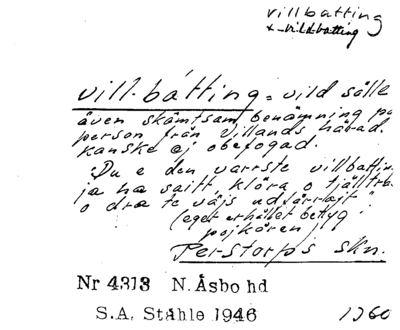 villbatting
+ vildbatting
vill-båtting = vild sälle
även skämtsam benämning på
person från Villands härad.
kanske ej obefogad.
"Du e den varrste villbattin
ja ha saitt, klöra o
o dra te väjs
(eget erhållet betyg
pojkåren)
Perstorps skn.
Nr 4313 N. Åsbo hd
S.A. Ståhle 1946 1960